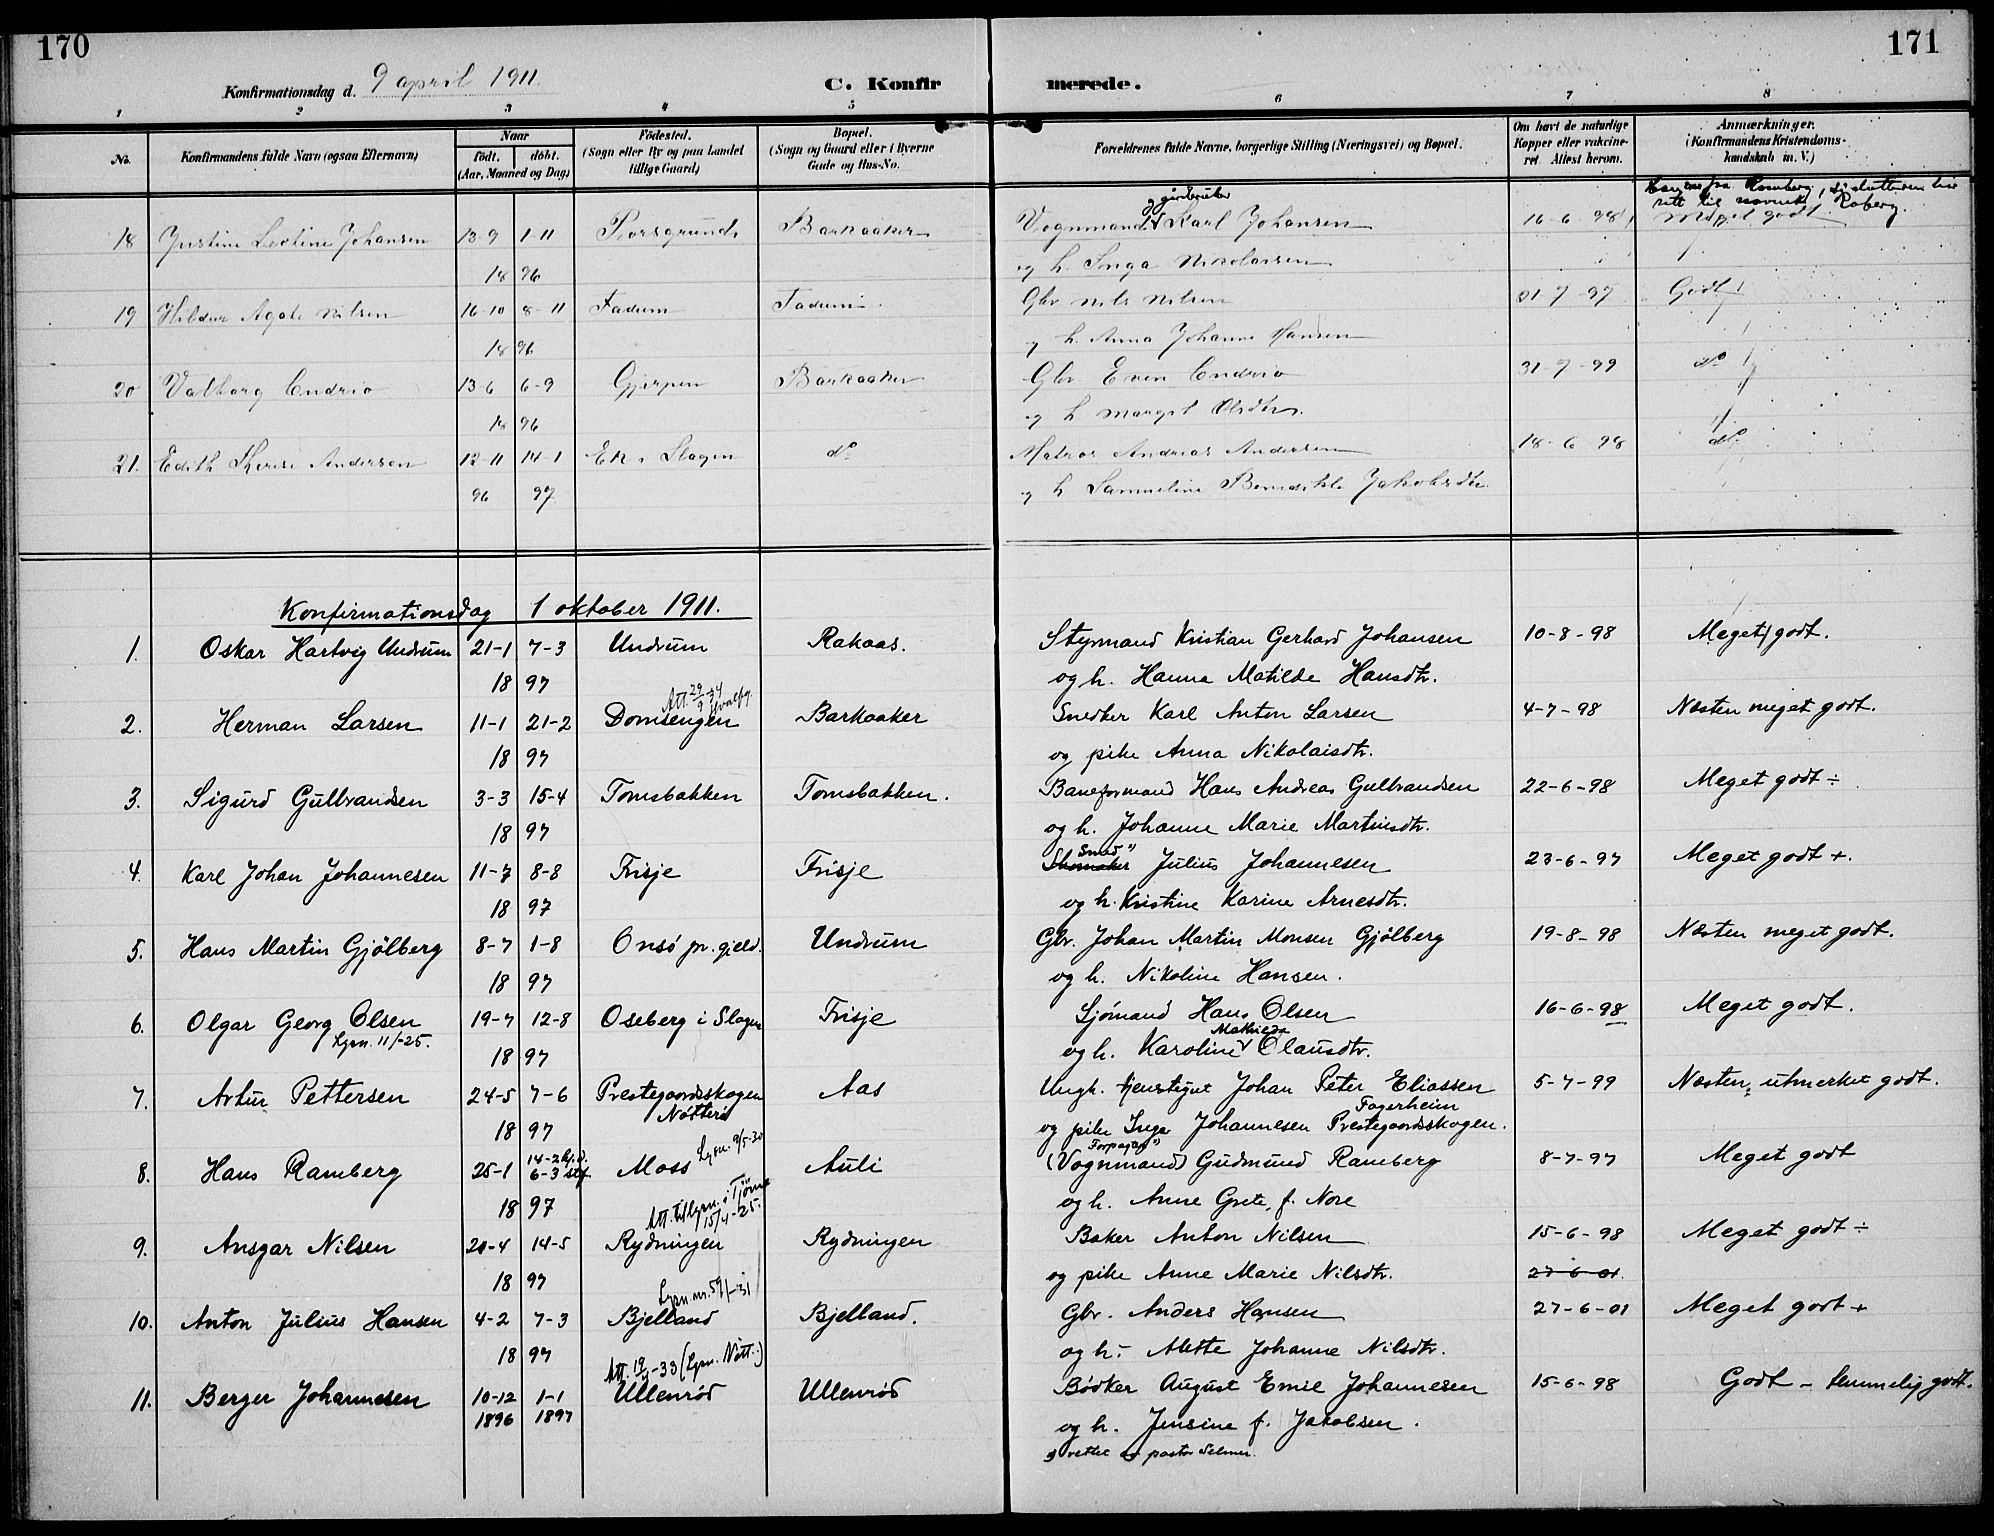 170
171
Konfirmationsdag d. 9 april 1911.
C. Konfirmerede.
1 2 3 4 5 6 7 8
No.
Konfirmandens fulde Navn (ogsaa Efternavn)
Naar
födt. döbt.
(Aar, Maaned og Dag)
Födested.
(Sogn eller By og paa Landet
tillige Gaard)
Bopæl.
(Sogn og Gaard eller i Byerne
Gade og Hus-No.
Forældrenes fulde Navne, borgerlige Stilling (Næringsvei) og Bopæl.
Om havt de naturlige
Kopper eller vakcine-
ret. Attest herom.
Anmærkninger.
(Konfirmandens Kristendoms-
kundskab m. V.)
og gårdbruker
18 Justine Leotine Johansen 13-9 1-11 Porsgrund Barkaaker Vognmand Karl Johansen 16-6-98 Meget godt
18 96 og h. Inga Nikolaisen
19 Hildur Agate Nilsen 16-10 8-11 Fadum Fadum Gbr Nils Nilsen 31-7-97 Godt
18 96 og h. Anna Johanne Hansen
20 Valborg Endrio 13-6 6-9 Gjerpen Barkaaker Gbr Even Endrio 31-7-99 do
18 96 og h Margit Olsdtr.
21. Edith Therese Andersen 12-11 14-1 Ek i Slagen do Matros Andreas Andersen 18-6-98 do
96 97 og h Samueline Benedikte Jakobsdtr.
Konfirmationsdag 1 oktober 1911.
1. Oskar Hartvig Undrum 21-1 7-3 Undrum Rakaas. Styrmand Kristian Gerhard Johansen 10-8-98 Meget godt.
18 97 og h. Hanna Matilde Hansdtr.
Att. 29/9 34
2. Herman Larsen 11-1 21-2 Domsengen Barkaaker Snedker Karl Anton Larsen 4-7-98 Næsten meget godt.
18 97 og pike Anna Nikolaisdtr.
3. Sigurd Gulbrandsen 3-3 15-4 Tomsbakken Tomsbakken. Baneformand Hans Andreas Gulbrandsen 22-6-98 Meget godt ÷
18 97 og h. Johanne Marie Martinsdtr.
Smed "
4. Karl Johan Johannesen 11-7 8-8 Frisje Frisje Skomaker Julius Johannesen 23-6-97 Meget godt +.
18 97 og h. Kristine Karine Arnesdtr.
5. Hans Martin Gjölberg 8-7 1-8 Onsö pr. gjeld. Undrum Gbr. Johan Martin Monsen Gjölberg 19-8-98 Næsten meget godt.
18 97 og h. Nikoline Hansen.
6. Olgar Georg Olsen 19-7 12-8 Oseberg i Slagen Frisje Sjömand Hans Olsen 16-6-98 Meget godt.
Lysn. 11/-25.
Mathiea
18 97 og h. Karoline Olausdtr.
7. Artur Pettersen 24-5 7-6 Prestegaardsskogen Aas Ungk. tjenstgut Johan Peter Eliassen 5-7-99 Næsten utmerket godt.
Nötterö
Fagerheim
18 97 og pike Inga Johannesen Prestegaardsskogen.
Lysn. 9/5-30
Forpagter "
8. Hans Ramberg 25-1 14-2 hjd. 6-3 stf. Moss Auli (Vognmand) Gudmund Ramberg 8-7-97 Meget godt
18 97 og h. Anne Grete, f. Nore
Att. til lysn. i Tjöme
15/4-25.
9. Ansgar Nilsen 20-4 14-5 Rydningen Rydningen Baker Anton Nilsen 15-6-98 Meget godt ÷
18 97 og pike Anne Marie Nilsdtr. 27-6-01.
Lysn. nr. 59/-31
10. Anton Julius Hansen 4-2 7-3 Bjelland Bjelland. Gbr. Anders Hansen 27-6-01 Meget godt +
18 97 og h. Alette Johanne Nilsdtr.
11. Berger Johannesen 10-12 1-1 Ullenröd Ullenröd Bödker August Emil Johannesen 15-6-98 Godt - temmelig godt.
1896 1897 og h. Jensine f. Jakobsen.
rettet av pastor Selmer.